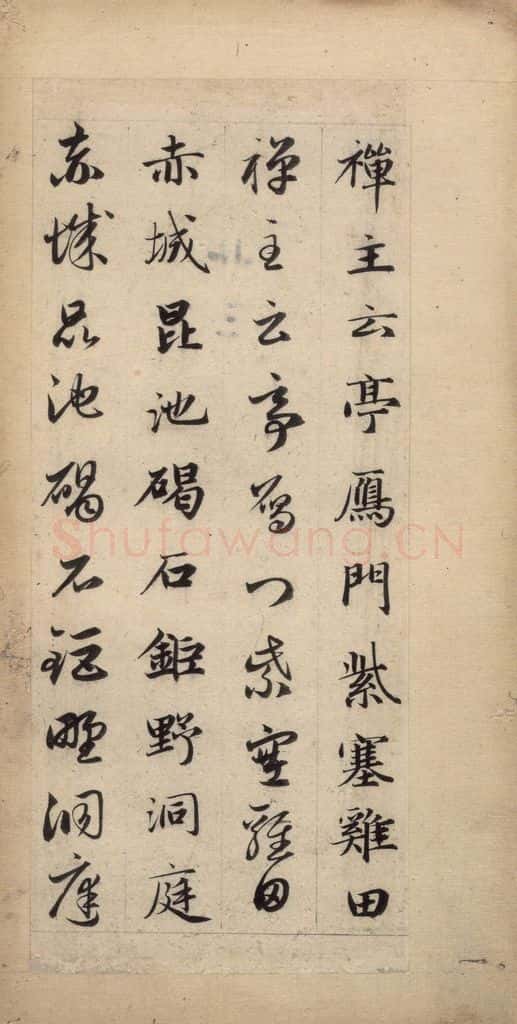 禪主云亭鴈門紫塞雞田
禪主云亭鴈門紫塞雞田
赤城昆池碣石鉅野洞庭
赤城昆池碣石鉅野洞庭
Shufawang.CN